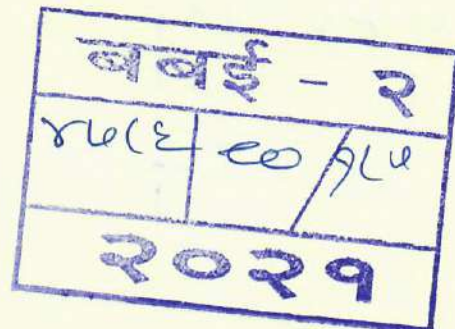 बबई - २
४५८६ ९० / १८५
२०२१